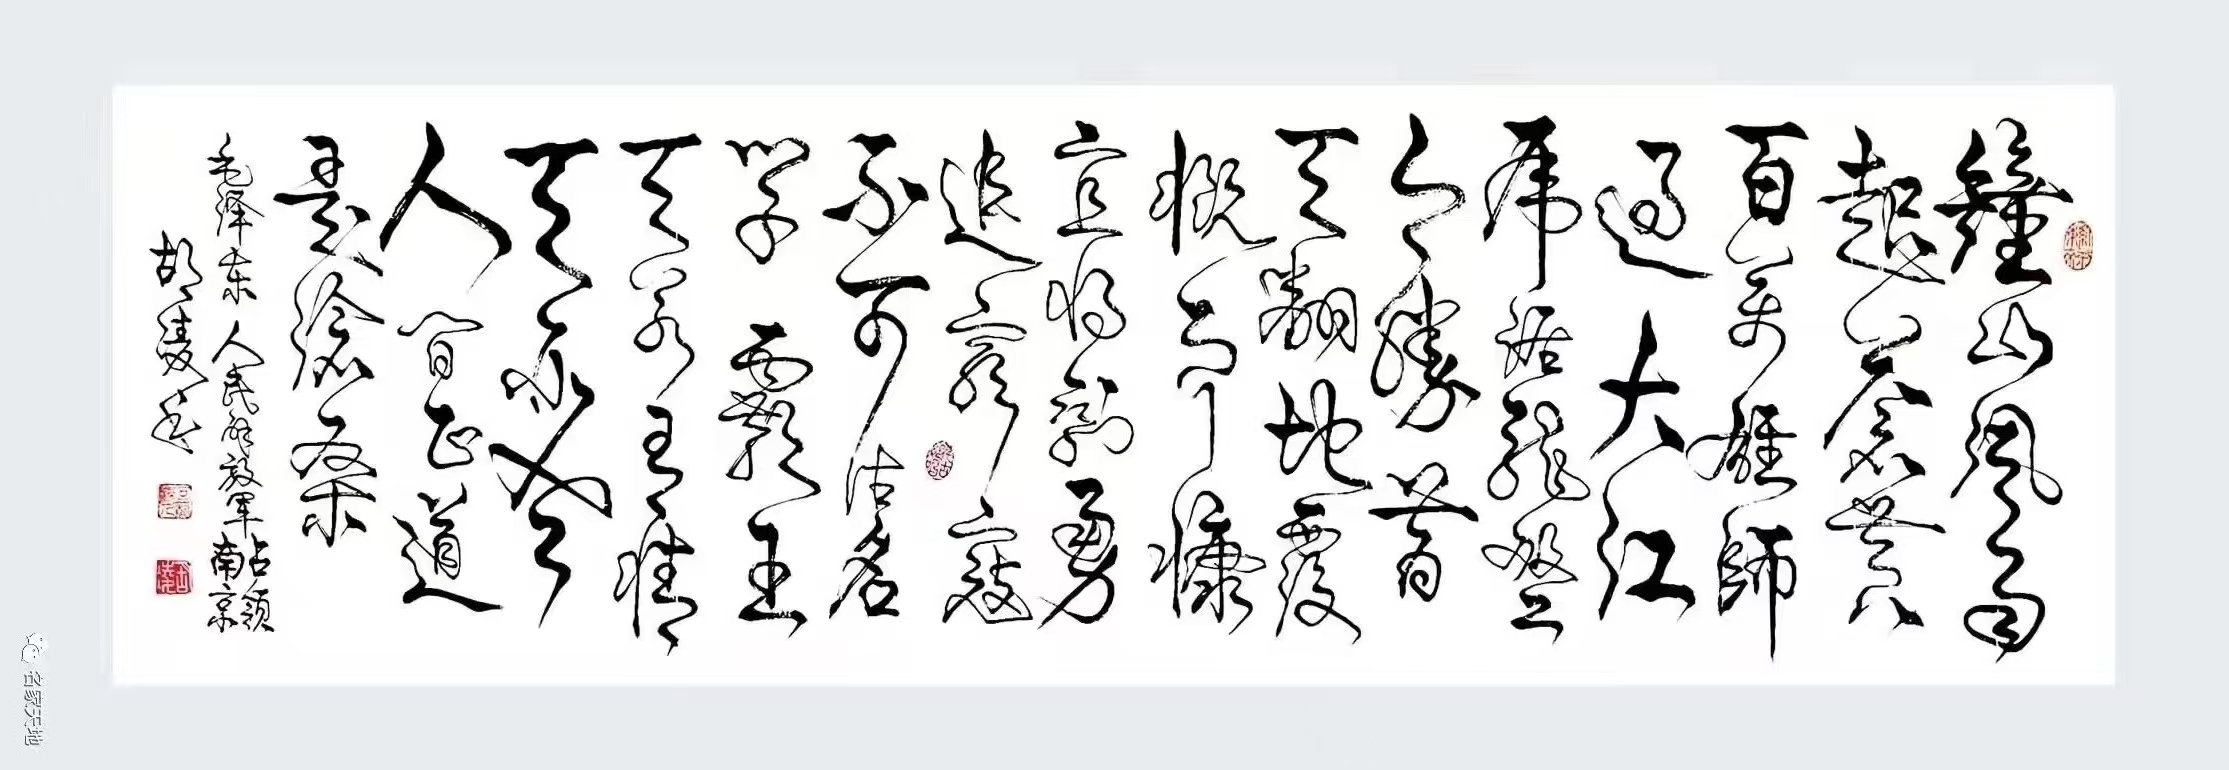 鐘山風雨
起蒼黄
百萬雄師
過大江
虎踞龍盤
今勝昔
天翻地覆
慨而慷
宜將剩勇
追窮寇
不可沽名
學霸王
天若有情
天亦老
人間正道
是滄桑
毛泽东 人民解放軍占領南京
胡凌
名家天地